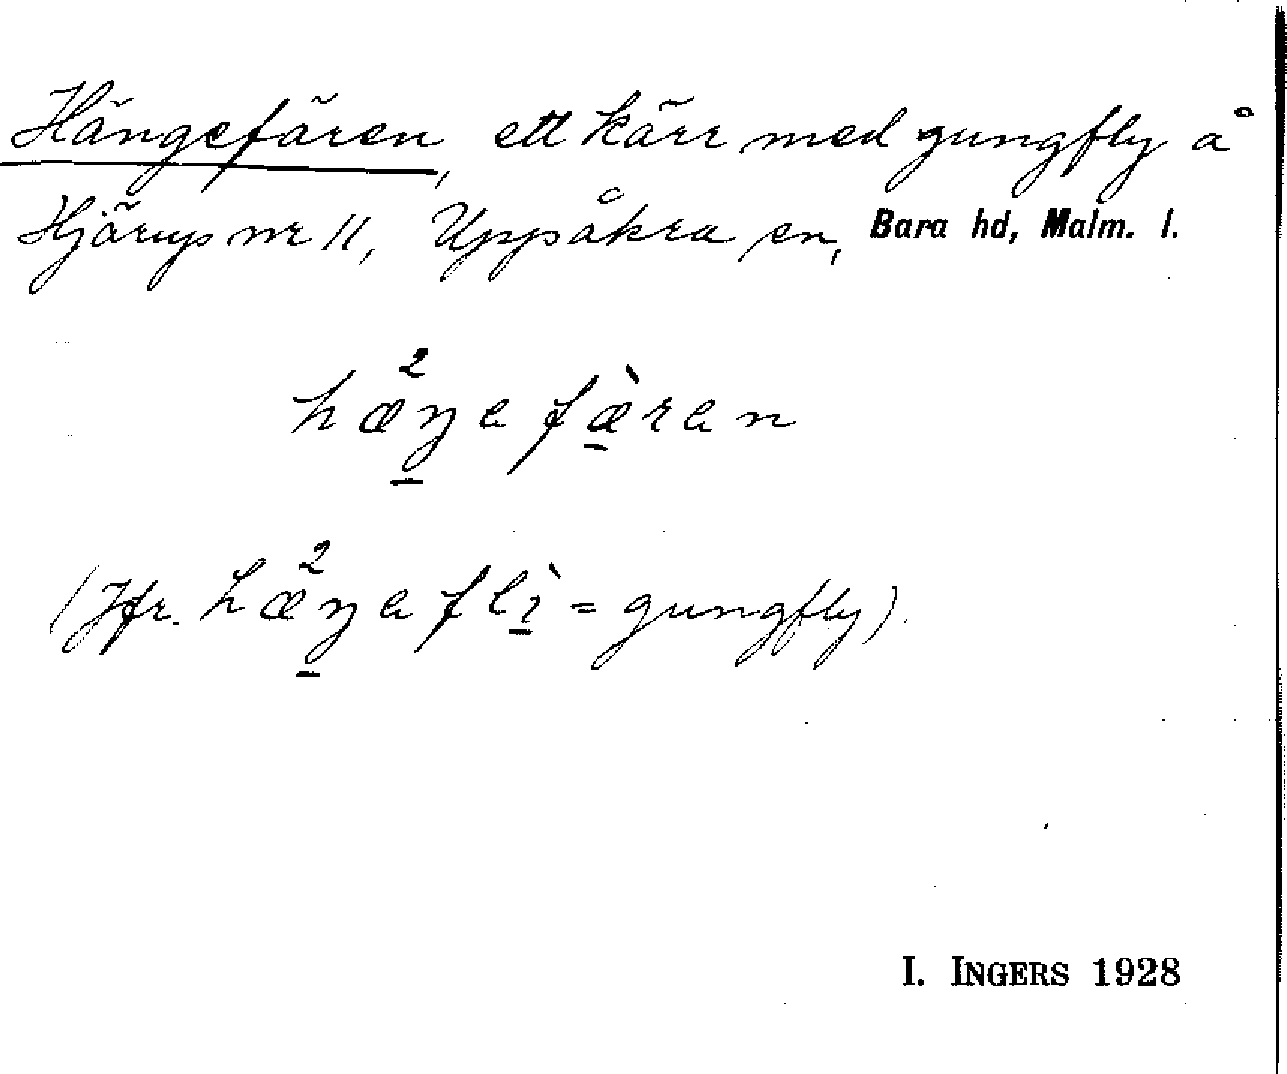 Hängefären, ett kärr med gungfly å
Hjärup nr 11, Uppåkra sn, Bara hd, Malm. l.
hæ²ŋafæ̀ran
(Jfr. hæ²ŋaflì = gungfly).
I. INGERS 1928